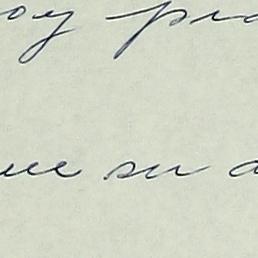 oy pro
ue su a